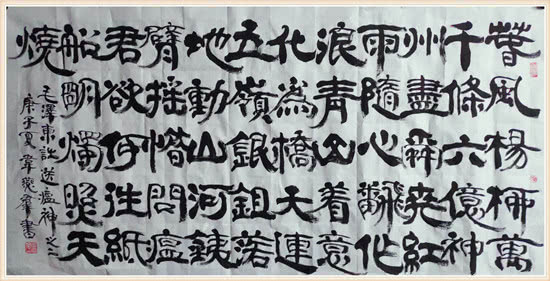 萅風楊柳萬
千條六億神
州盡舜堯紅
雨隨心翻作
浪青山着意
化為橋天連
五嶺銀鉏落
地動山河銕
臂摇借問瘟
君欲何往紙
船朙燭照天
燒
毛澤東詩送瘟神之二
庚子夏韋書